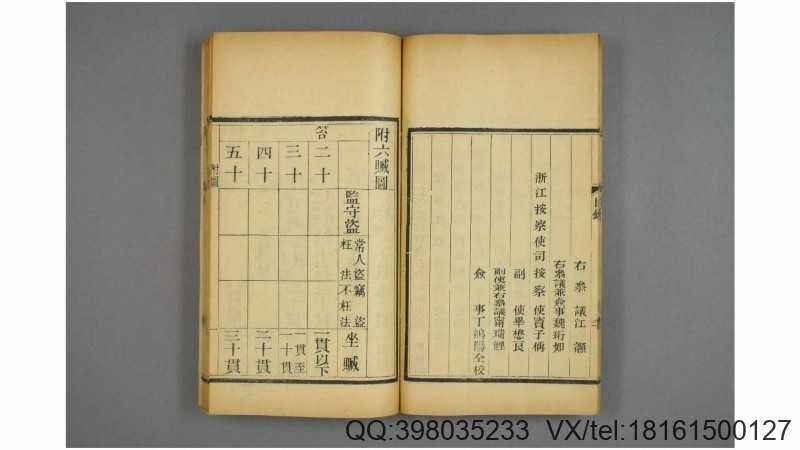 目錄
右叅議江
右叅議兼僉事魏珩如
浙江按察使司按察使賈子偁
副使畢懋良
副使兼右叅議甯瑞鯉
僉事丁鴻陽仝校
附六贓圖
監守盜
常人盜 竊盜
枉法 不枉法
坐贓
笞
二十
一貫以下
三十
一貫至
一十貫
四十
二十貫
五十
三十貫
附圖
QQ:398035233 VX/tel:18161500127